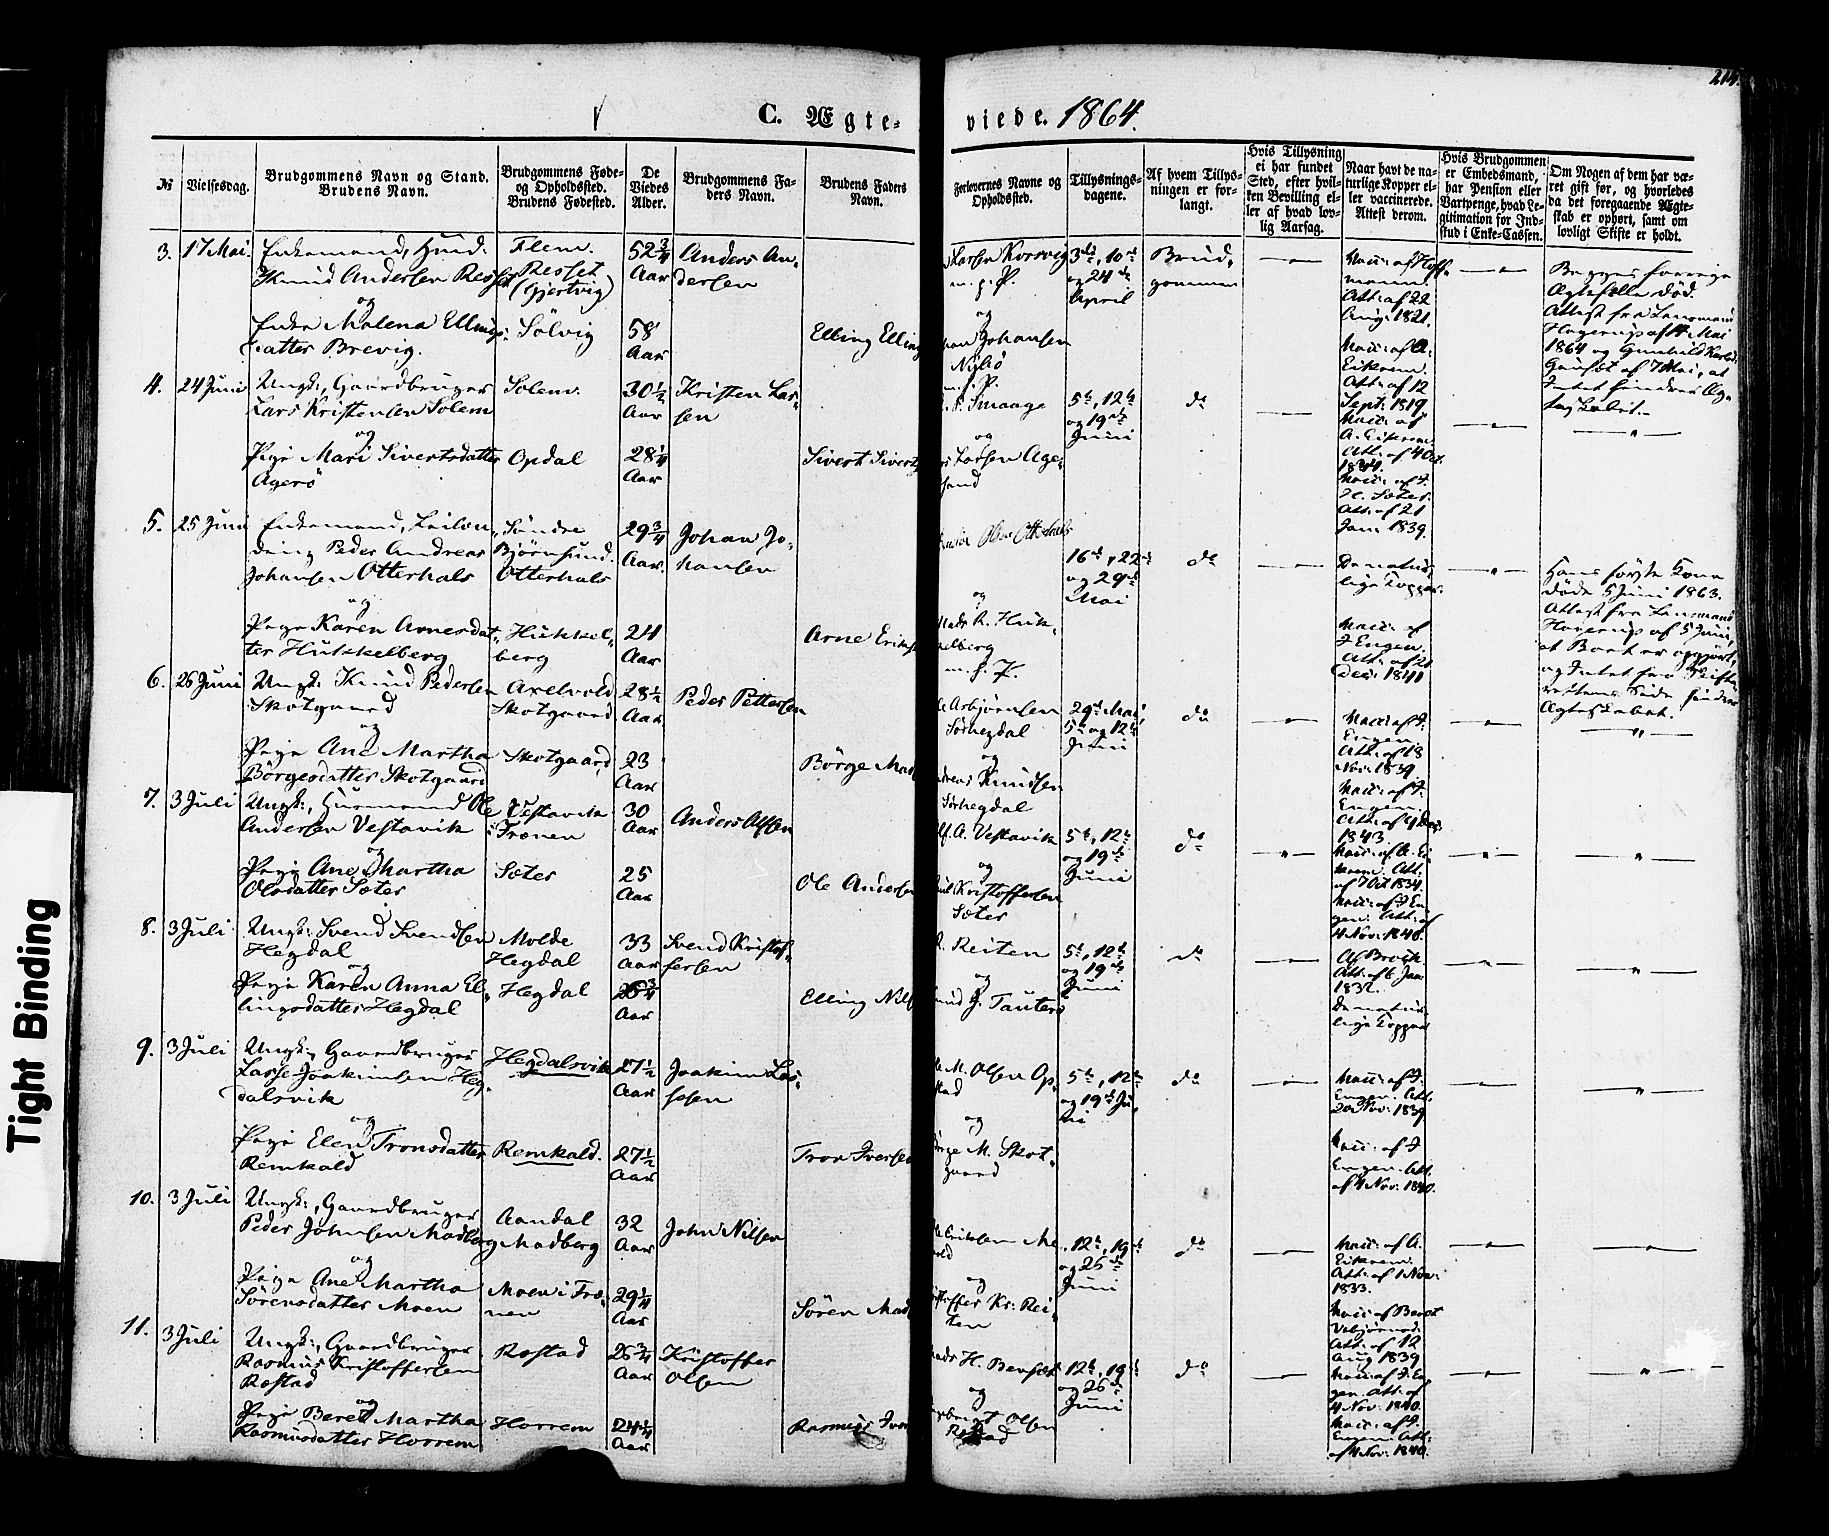 214.
C. Ægte- viede. 1864.
№
Vielsesdag.
Brudgommens Navn og Stand.
Brudens Navn.
Brudgommens Føde-
og Opholdssted.
Brudens Fødested.
De
Viedes
Alder.
Brudgommens Fa-
ders Navn.
Brudens Faders
Navn.
Forlovernes Navne og
Opholdssted.
Tillysnings-
dagene.
Af hvem Tillys-
ningen er for-
langt.
Hvis Tillysning
ei har fundet
Sted, efter hvil-
ken Bevilling el-
ler af hvad lov-
lig Aarsag.
Naar havt de na-
turlige Kopper el-
ler vaccinerede.
Attest derom.
Hvis Brudgommen
er Embedsmand,
har Pension eller
Vartpenge, hvad Le-
gitimation for Ind-
skud i Enke-Cassen.
Om Nogen af dem har væ-
ret gift før, og hvorledes
da det foregaaende Ægte-
skab er ophørt, samt om
lovligt Skifte er holdt.
3. 17 Mai.
Enkemand, Huusm.
Knud Andersen Resset
og
Enke Malena Ellings-
datter Brevig.
Flem.
Resset
(Gjertvig)
Sølvig
52 3/4
Aar
58
Aar
Anders An-
dersen
Elling Elling
Larsen Korsvig
m. f. P.
og
Johansen
Nybø
m. f. P.
3die, 10de
og 24de
April
Brud-
gommen
Vacc: af Hoff-
mann.
Att: af 22
Aug: 1821.
Vacc: af A.
Eikrem.
Att: af 12
Sept: 1819
Begges forrige
Ægtefælle død.
Attest fra Lensmand
Hagerup af 7 Mai
1864 og Gunhild
af 7 Mai, at
Intet hindrer Æg-
teskabet.
4. 24 Juni
Ungk:, Gaardbruger
Lars Kristensen Solem
og
Pige Mari Sivertsdatter
Agerö
Solem.
Opdal
30 1/2
Aar
28 1/4
Aar
Kristen Lar-
sen
Sivert Siverts
Smaage
og
Larsen Age-
sand
5te, 12te
og 19de
Juni
do
Vacc: af
A. Eikrem.
Att: af 4 Oct.
1834.
Vacc: af J.
H. Sæter.
Att: af 21
Jan: 1839.
5. 25 Juni
Enkemand, Leilæn-
ding Peder Andreas
Johansen Otterhals
og
Pige Karen Arnesdat-
ter Hukkelberg
Søndre
Bjørnsund.
Otterhals
Hukkel-
berg
29 3/4
Aar.
24
Aar
Johan Jo-
hansen
Arne Eriks
Olsen Otterhals
og
Mads R. Huk-
kelberg
m. f. P.
16de, 22de
og 29de
Mai
do
De natur-
lige Kopper.
Vacc: af
J Engen.
Att: af 21
Dec: 1841
Hans første Kone
døde 5 Juni 1863.
Attest fra Lensmand
Hagerup af 5 Juni,
at Boet er opgjort,
og Intet fra Skifte-
rettens Side hindrer
Ægteskabet.
6. 26 Juni
Ungk: Knud Pedersen
Skotgaard
og
Pige Ane Martha
Børgesdatter Skotgaard
Axelvold
Skotgaard
Skotgaard
28 1/2
Aar
23
Aar
Peder Pettersen
Börge Mad
Asbjørnsen
Sørhegdal
og
Knudsen
Sørhegdal
29de Mai,
5te og 12te
Juni
do
Vacc: af J.
Engen.
Att: af 18
Nov: 1839
Vacc: af J.
Engen.
Att: af 9 Dec:
1843
7. 3 Juli
Ungk:, Huusmand Ole
Andersen Vestavik
og
Pige Ane Martha
Olsdatter Sæter
Vestavik
i Frænen
Sæter
30
Aar
25
Aar
Anders Olsen
Ole Anderse
A. Vestavik
og
Kristoffersen
Sæter
5te, 12te
og 19de
Juni
do
Vacc: af A. Ei-
krem. Att:
af 7 Oct 1834.
Vacc: af J En-
gen: Att: af
4 Nov: 1840.
8. 3 Juli
Ungk: Svend Svendsen
Hegdal
og
Pige Karen Anna El-
lingsdatter Hegdal
Molde
Hegdal
Hegdal
33
Aar
Aar
Svend Kristof-
fersen
Elling Nils
Reiten
og
Knud J. Tautra
5te, 12te
og 19de
Juni
do
Af Brock.
Att: af 6 Jan
1832.
De natur-
lige Kopper
9. 3 Juli
Ungk:, Gaardbruger
Lasse Joakimsen Heg-
dalsvik
og
Pige Elen Tronsdatter
Remkald
Hegdalsvik
Remkald.
27 1/2
Aar
27 1/2
Aar
Joakim Las-
sesen
Tron Iversen
M. Olsen Op-
stad
og
Børge M. Skot-
gaard
5te, 12te
og 19de Ju-
ni
do
Vacc: af J.
Engen. Att:
20 Nov: 1839
Vacc: af J
Engen. Att.
af 4 Nov: 1840.
10. 3 Juli
Ungk:, Gaardbruger
Peder Johnsen Madberg
og
Pige Ane Martha
Sörensdatter Moen
Aandal
Madberg
Moen i Fræ-
nen
32
Aar
29 1/4
Aar
John Nilsen
Sören Mad
Eriksen
og
Kristoffer Kr: Rei-
ten
12te, 19de
og 26de
Juni
do
Vacc: af A.
Eikrem.
Att: af 1 Nov:
1833.
Vacc: af Beret
Vebjørnsd.
Att: af 12
Aug 1839
11. 3 Juli
Ungk:, Gaardbruger
Rasmus Kristoffersen
Rostad
og
Pige Beret Martha
Rasmusdatter Horrem
Rostad
Horrem
25 3/4
Aar
24 1/4
Aar
Kristoffer
Olsen
Rasmus Iver
Mads H. Bersæt
og
Olsen
Rostad
12te, 19de
og 26de
Juni
do
Vacc: af J. En-
gen. Att: af
4 Nov: 1840.
Vacc: af J.
Engen. Att:
af 4 Nov: 1840.
Tight Binding